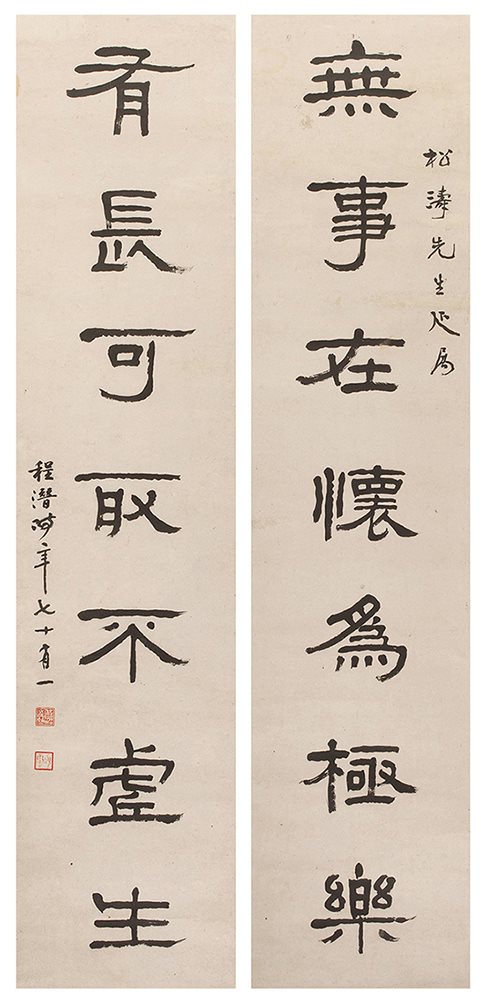 松濤先生正属
無事在懷為極樂
有長可取不虛生
程潛時年七十有一